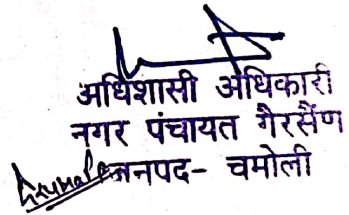 अधिशासी अधिकारी
नगर पंचायत गैरसैंण
जनपद- चमोली